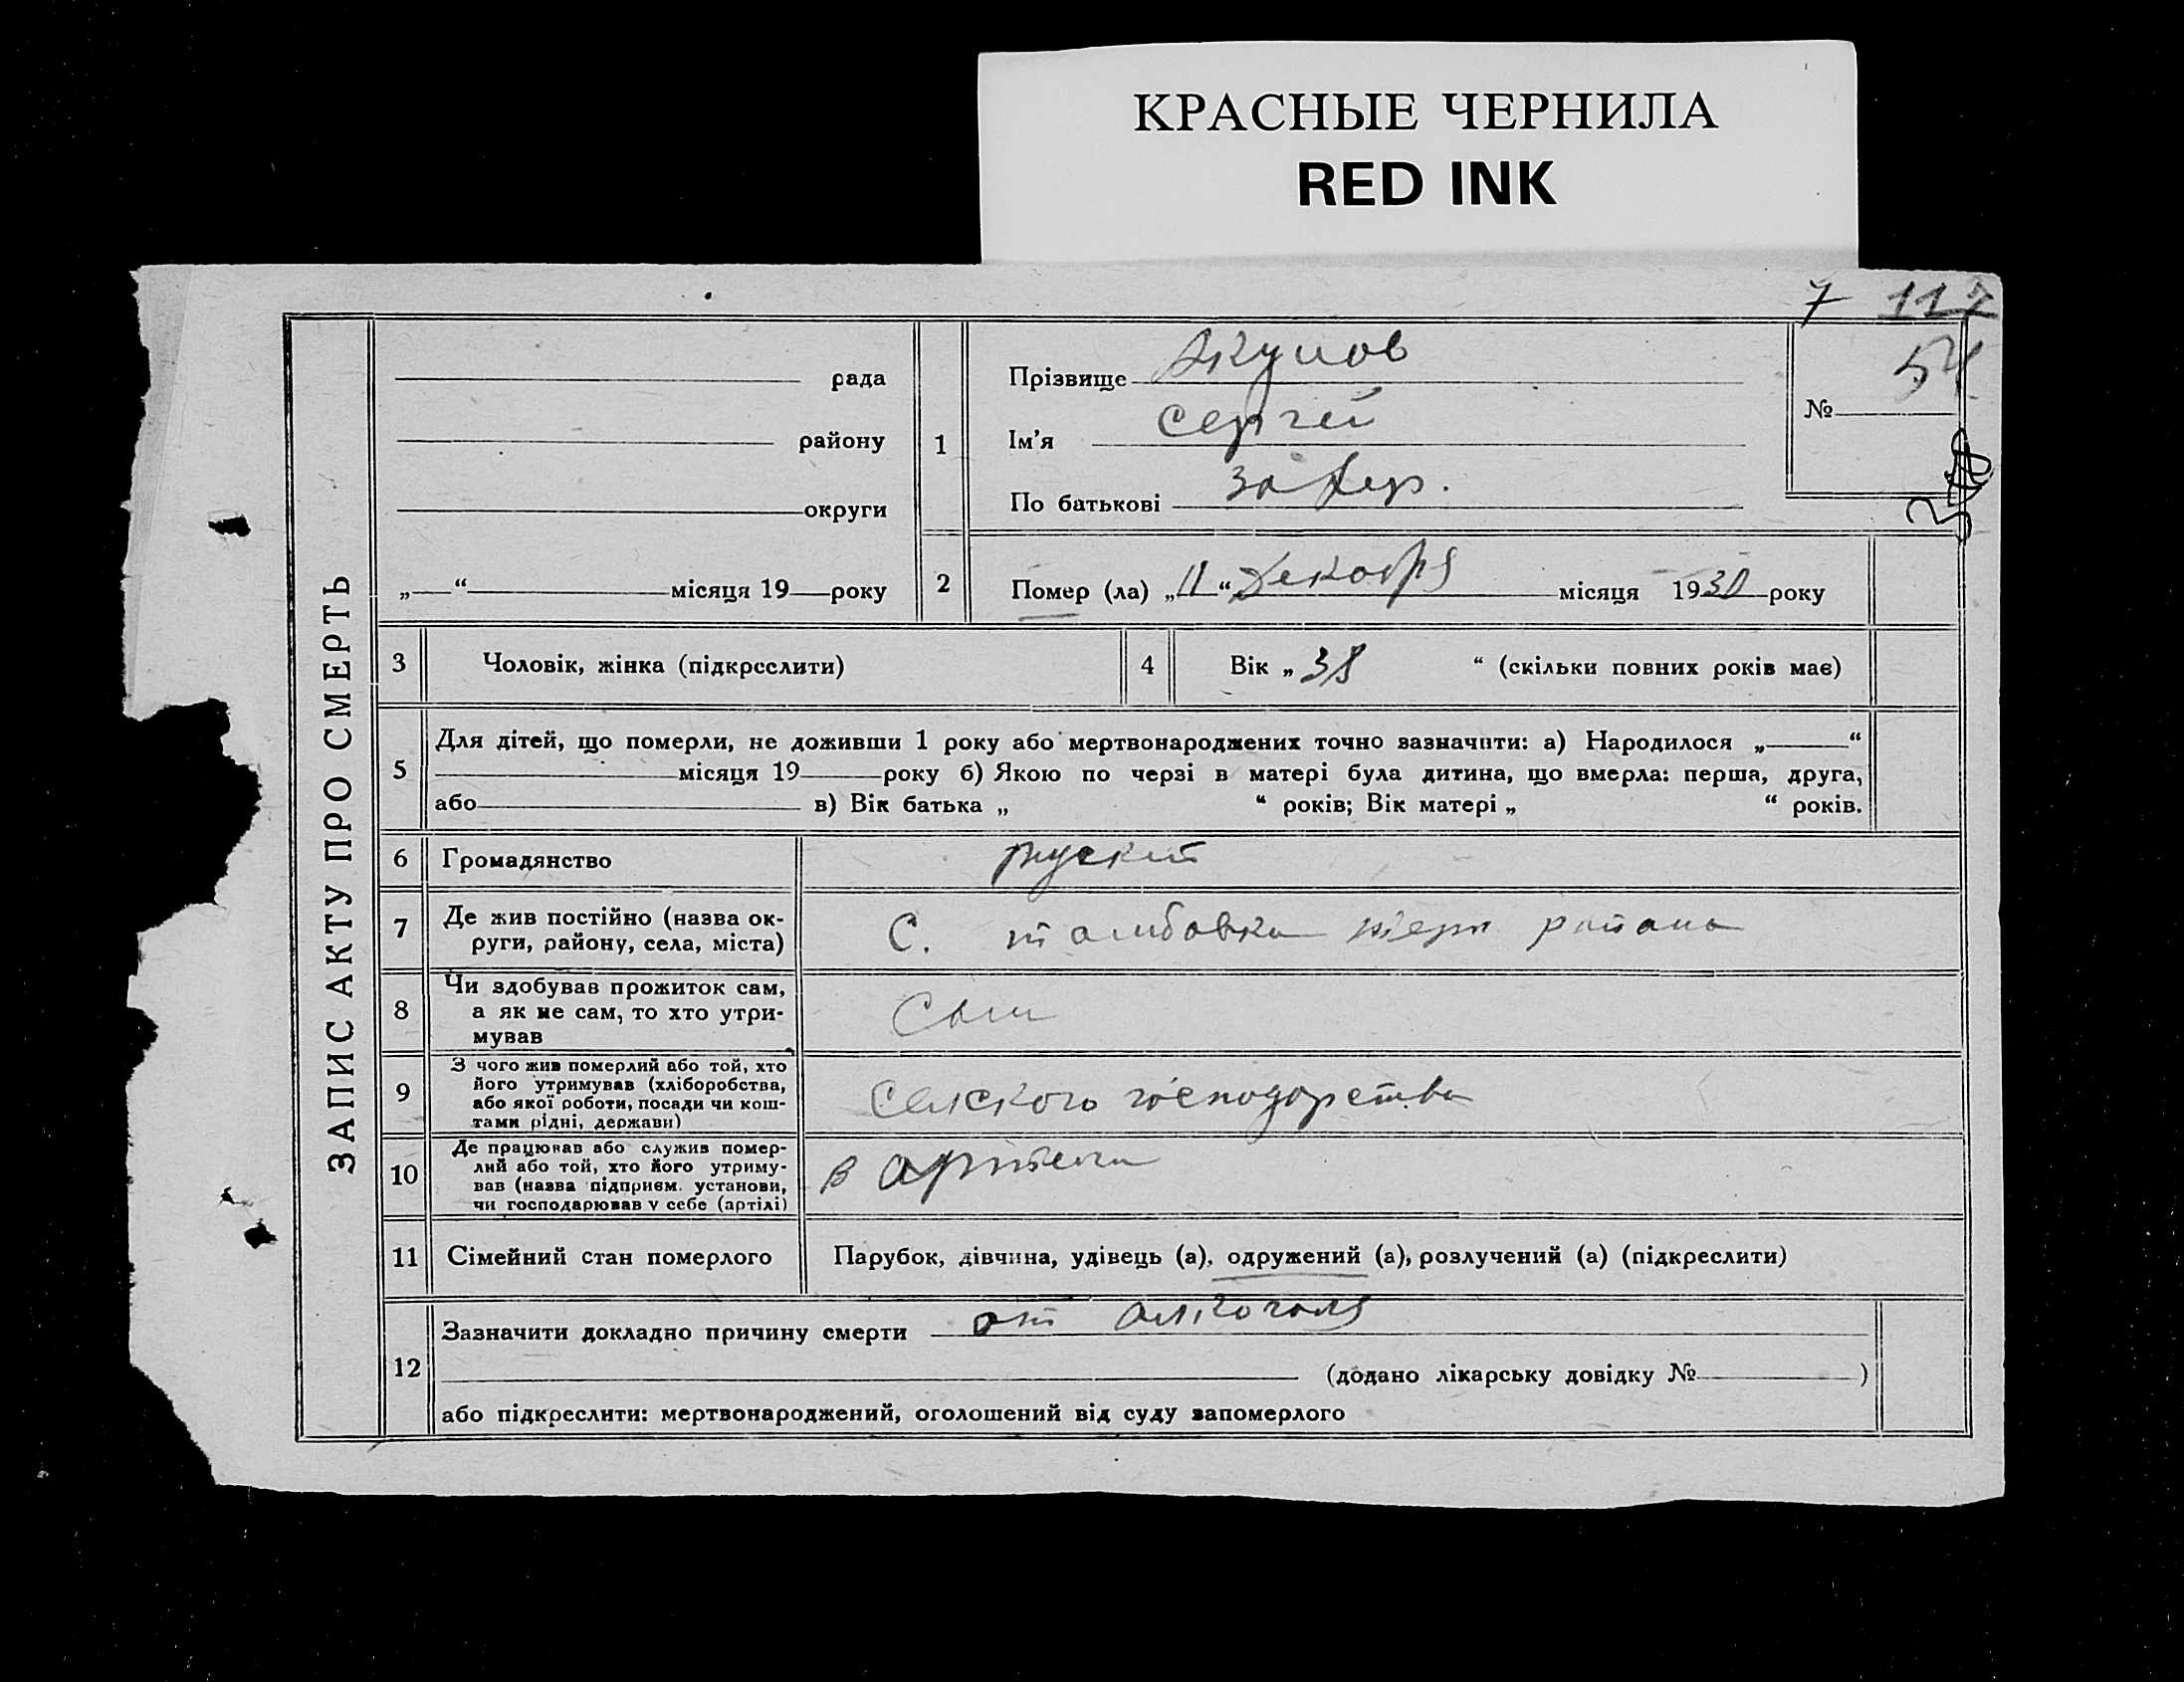 КРАСНЫЕ ЧЕРНИЛА
RED INK
7 117
ЗАПИС АКТУ ПРО СМЕРТЬ
рада
району
округи
„ “ місяця 19 року
1
Прізвище Якунов
Ім'я Сергей
По батькові
№ 54
2
Помер (ла) „11“ Декабря місяця 1930 року
3 Чоловік, жінка (підкреслити)
4 Вік „38 “ (скільки повних років має)
5
Для дітей, що померли, не доживши 1 року або мертвонароджених точно зазначити: а) Народилося „ “
місяця 19 року б) Якою по черзі в матері була дитина, що вмерла: перша, друга,
або в) Вік батька „ “ років; Вік матері „ “ років.
6 Громадянство руский
7 Де жив постійно (назва ок-
руги, району, села, міста)
С. тамбовка района
8 Чи здобував прожиток сам,
а як не сам, то хто утри-
мував
Сам
9 З чого жив померлий або той, хто
його утримував (хліборобства,
або якої роботи, посади чи кош-
тами рідні, держави)
Селского господарства
10 Де працював або служив помер-
лий або той, хто його утриму-
вав (назва підприєм. установи,
чи господарював у себе (артілі)
в артели
11 Сімейний стан померлого Парубок, дівчина, удівець (а), одружений (а), розлучений (а) (підкреслити)
12
Зазначити докладно причину смерти от алкоголя
(додано лікарську довідку № )
або підкреслити: мертвонароджений, оголошений від суду запомерлого